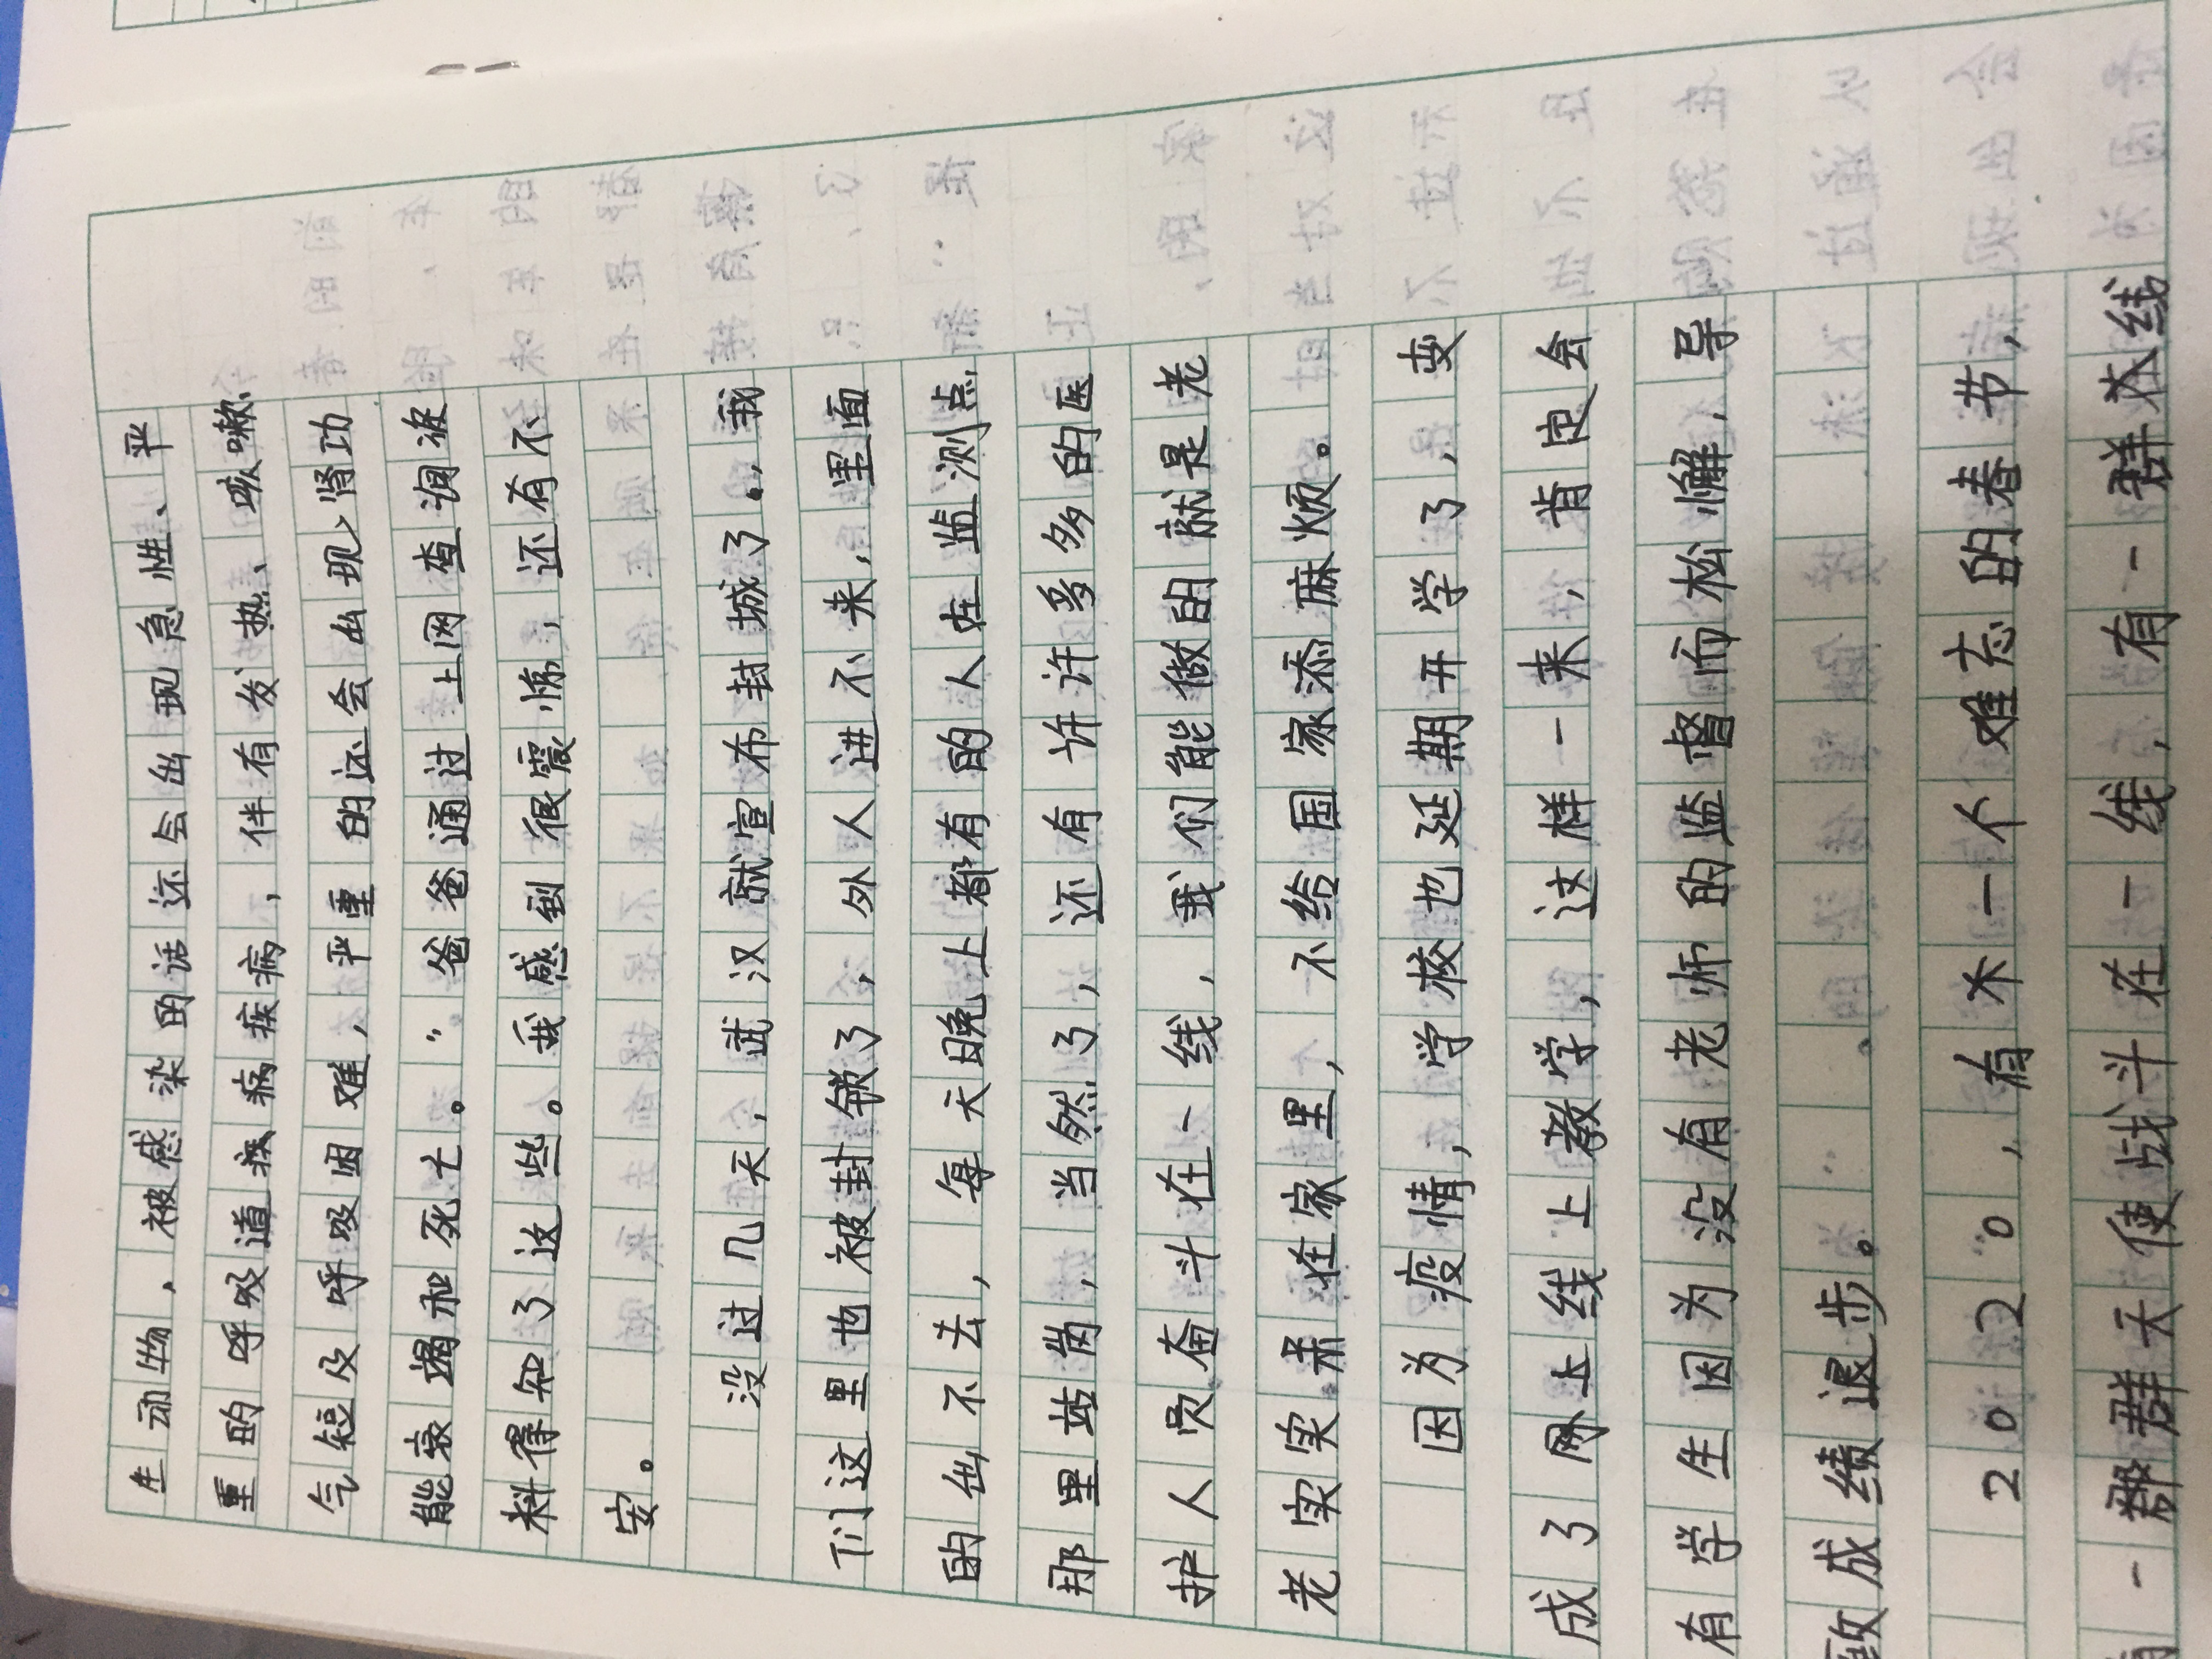 生动物，被感染的话还会出现急性、严
重的呼吸道疾病疾病，伴有发热、咳嗽、
气短及呼吸困难，严重的还会出现肾功
能衰竭和死亡。”爸爸通过上网查询资
料得知了这些。我感到很震惊，还有不
安。
没过几天，武汉就宣布封城了。，我
们这里也被封锁了，外人进不来，里面
的出不去，每天晚上都有的人在监测点，
那里站岗，当然了，还有许许多多的医
护人员奋斗在一线，我们能做的就是老
老实实呆在家里，不给国家添麻烦。
因为疫情，学校也延期开学了，变
成了网上线上教学，这样一来，肯定会
有学生因为没有老师的监督而松懈，导
致成绩退步。
2020，有不一个难忘的春节，
有一群天使战斗在一线，有一群在线